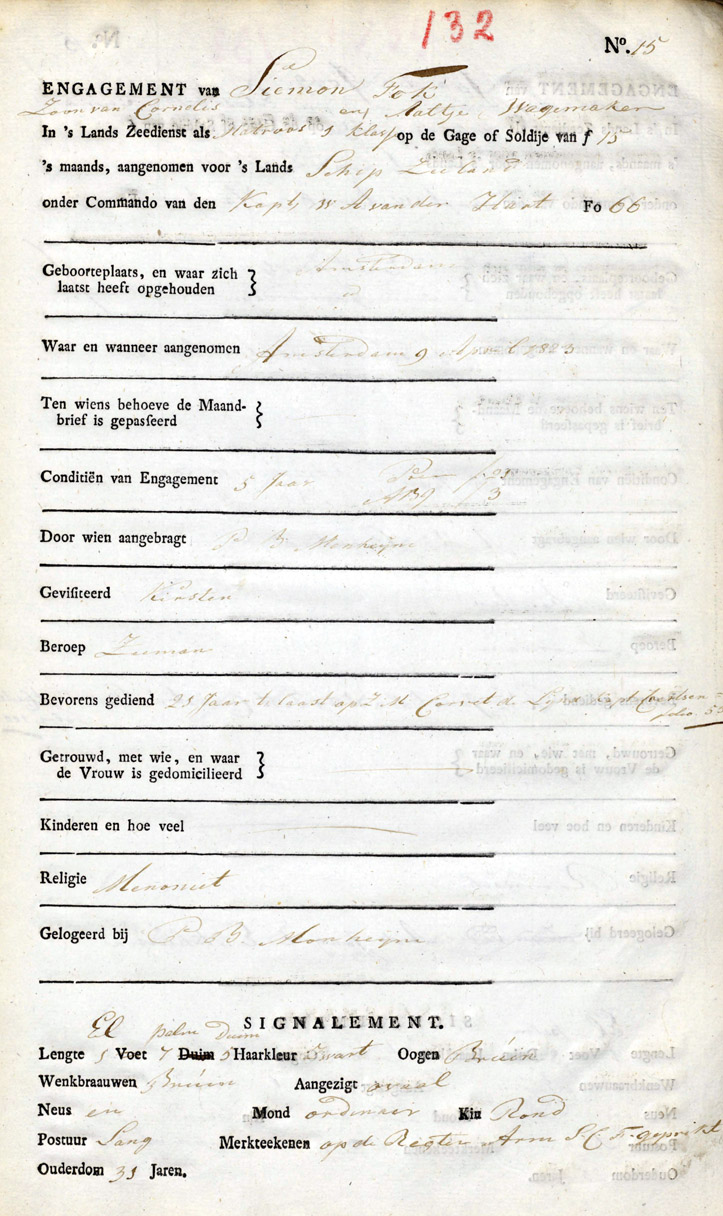 132
No. 15
ENGAGEMENT van Siemon Fok
Zoon van Cornelis en Aaltje Wagemaker
In 's Lands Zeedienst als Matroos 1 klasse op de Gage of Soldije van f 15
's maands, aangenomen voor 's Lands Schip Zeeland
onder Commando van den Kaptn W A van der Hart Fo 66
Geboorteplaats, en waar zich Amsterdam
laatst heeft opgehouden
Waar en wanneer aangenomen Amsterdam 9 April 1823
Ten wiens behoeve de Maand-
brief is gepasseerd
Conditiën van Engagement 5 Jaar
Door wien aangebragt P B Monheym
Gevisiteerd Kirsten
Beroep Zeeman
Bevorens gediend 21 Jaar t laast op Z. M Corvet de Lynx Capt
folio 53
Getrouwd, met wie, en waar
de Vrouw is gedomicilieerd
Kinderen en hoe veel
Religie Menoniet
Gelogeerd bij P B Monheym
SIGNALEMENT.
El palm Duim
Lengte 1 Voet 7 Duim 5 Haarkleur Zwart Oogen Bruin
Wenkbraauwen Bruin Aangezigt ovaal
Neus en Mond ordinair Kin Rond
Postuur Lang Merkteekenen op de Regter Arm S. C F. geprikt
Ouderdom 31 Jaren.